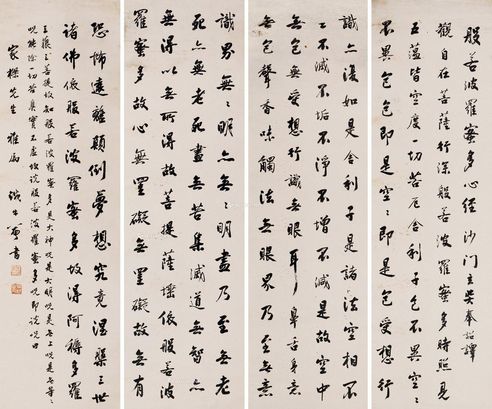 般若波羅蜜多心經沙門玄奘奉詔譯
觀自在菩薩行深般若波羅蜜多時照見
五蘊皆空度一切苦厄舍利子色不異空空
不異色色即是空空即是色受想行
識亦復如是舍利子是諸法空相不
生不滅不垢不淨不增不減是故空中
無色無受想行識無眼耳鼻舌身意
無色聲香味觸法無眼界乃至無意
識界無無明亦無無明盡乃至無老
死亦無老死盡無苦集滅道無智亦
無得以無所得故菩提薩埵依般若波
羅蜜多故心無罣礙無罣礙故無有
恐怖遠離顛倒夢想究竟涅槃三世
諸佛依般若波羅蜜多故得阿耨多羅
三藐三菩提故知般若波羅蜜多是大神咒是大明咒是無上咒是無等等
咒能除一切苦真實不虛故說般若波羅蜜多咒即說咒曰
家 先生 雅屬 書